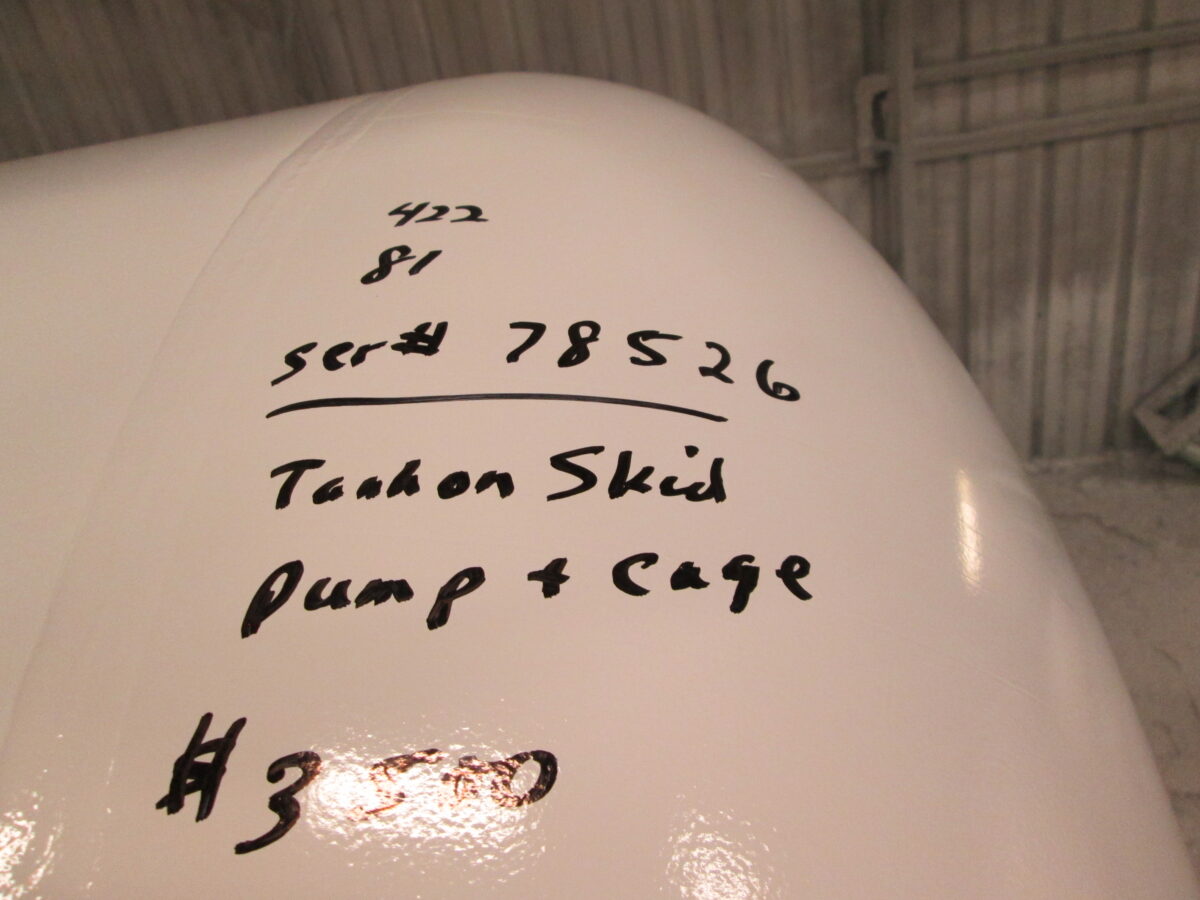 422
81
ser# 78526
Tank on Skid
Pump + Cage